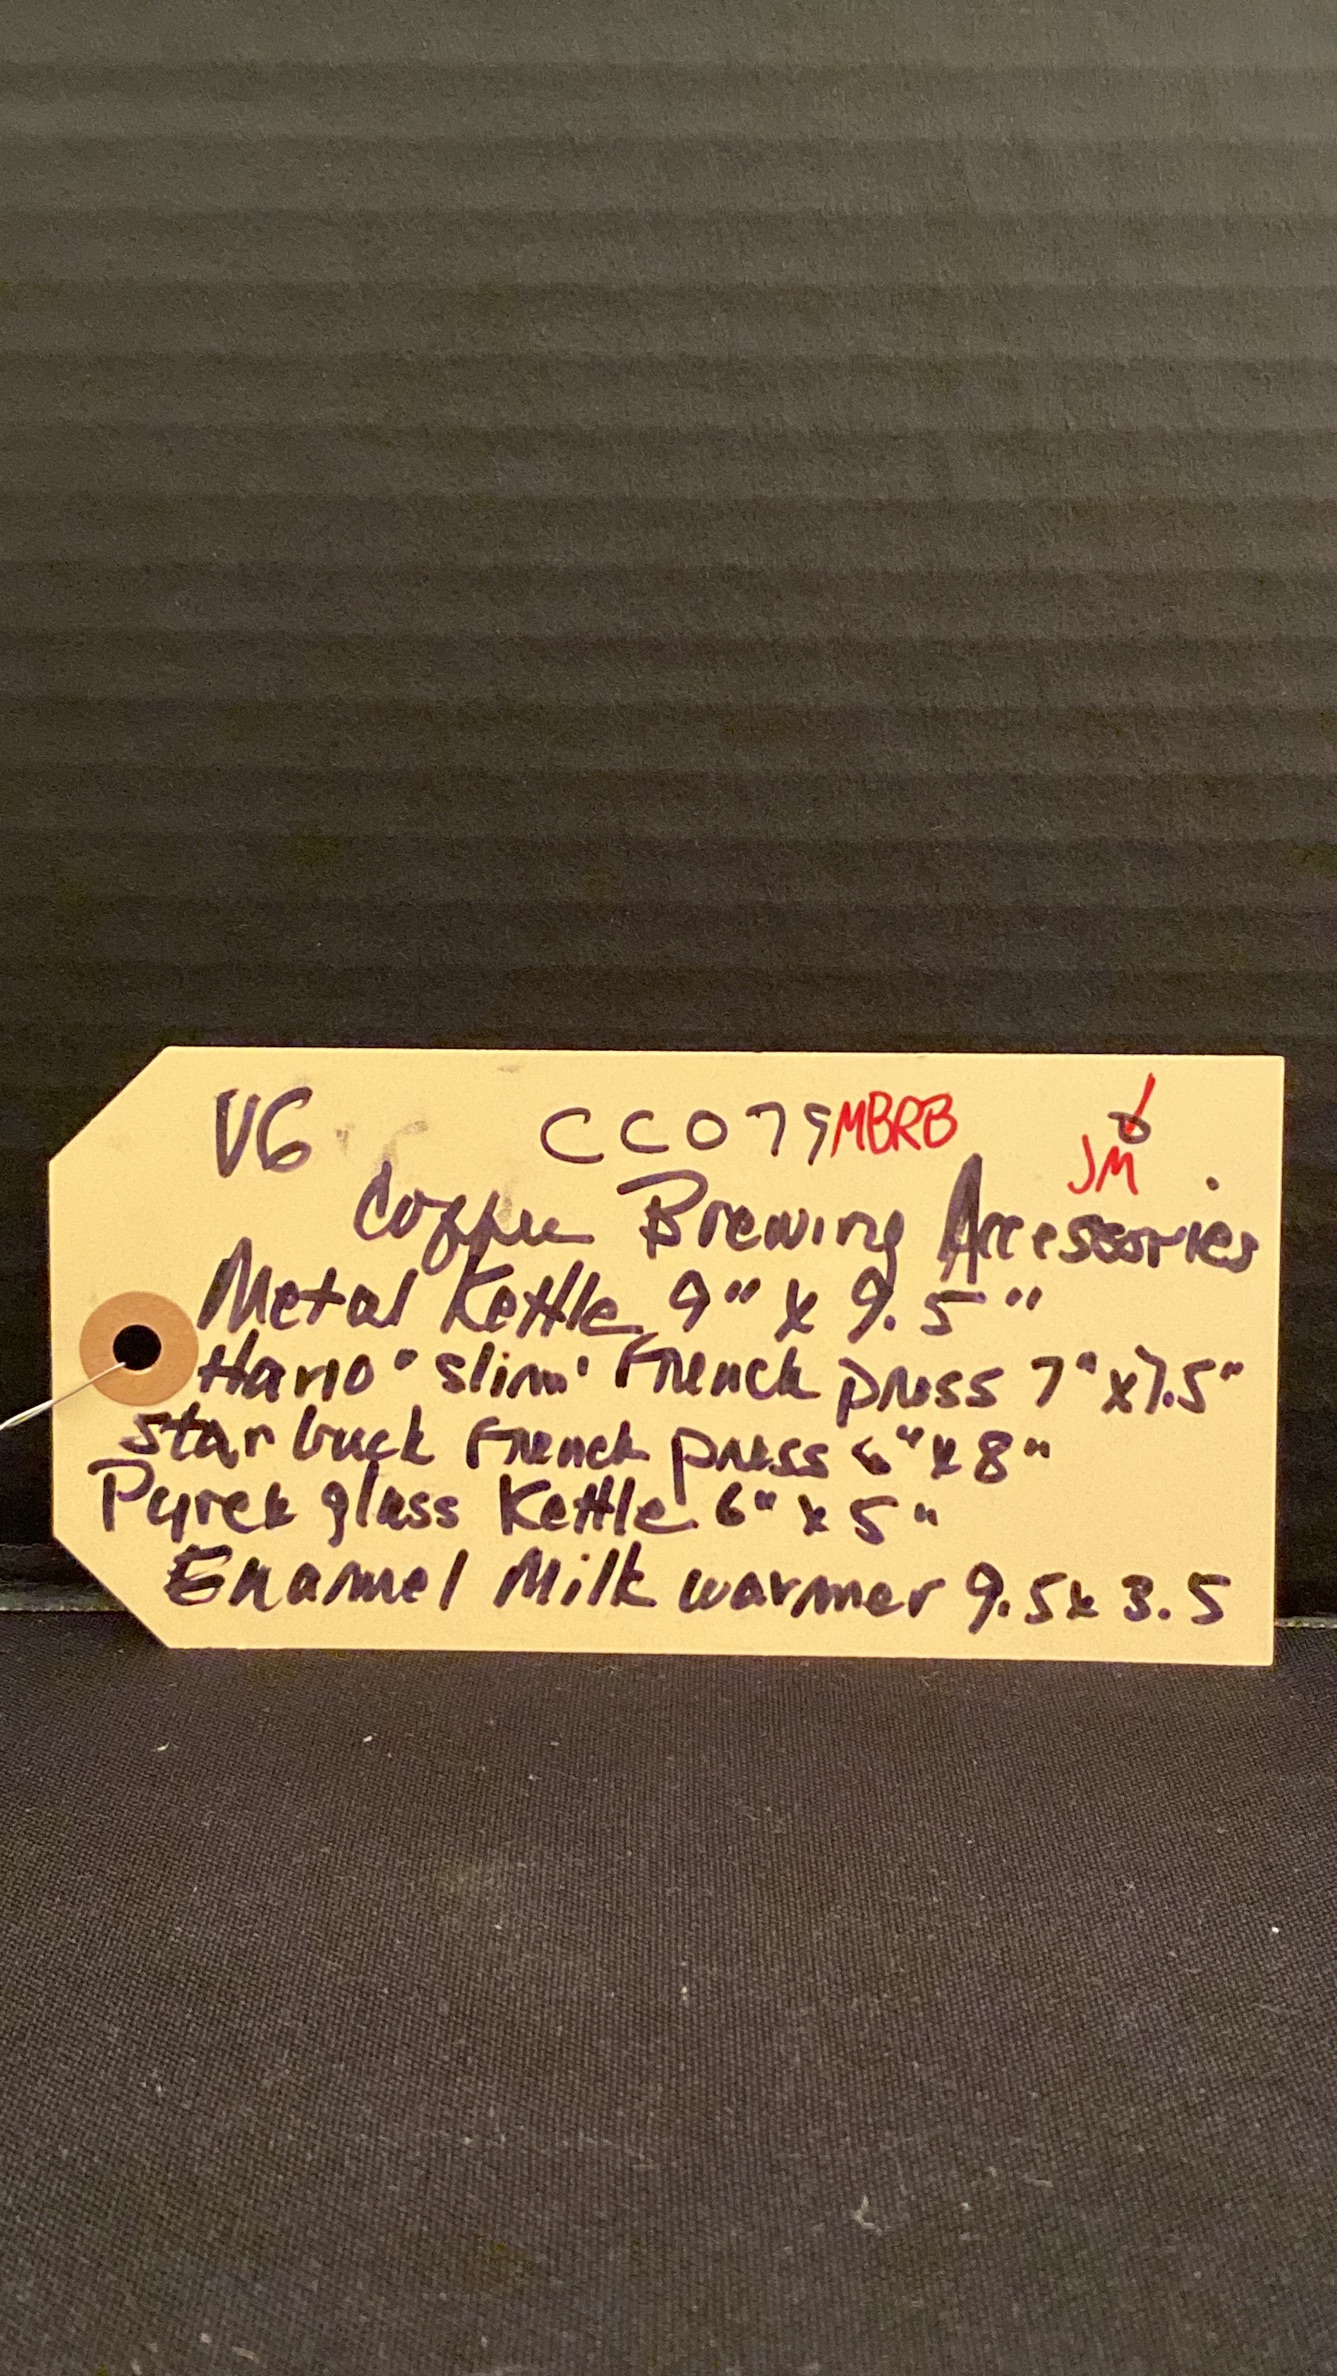 VG CC079 MBRB JM
Coffee Brewing Accessories
Metal Kettle 9" x 9.5"
Hario "slim" French press 7" x 7.5"
Starbuck French press 6" x 8"
Pyrex glass Kettle 6" x 5"
Enamel Milk warmer 9.5 x 3.5